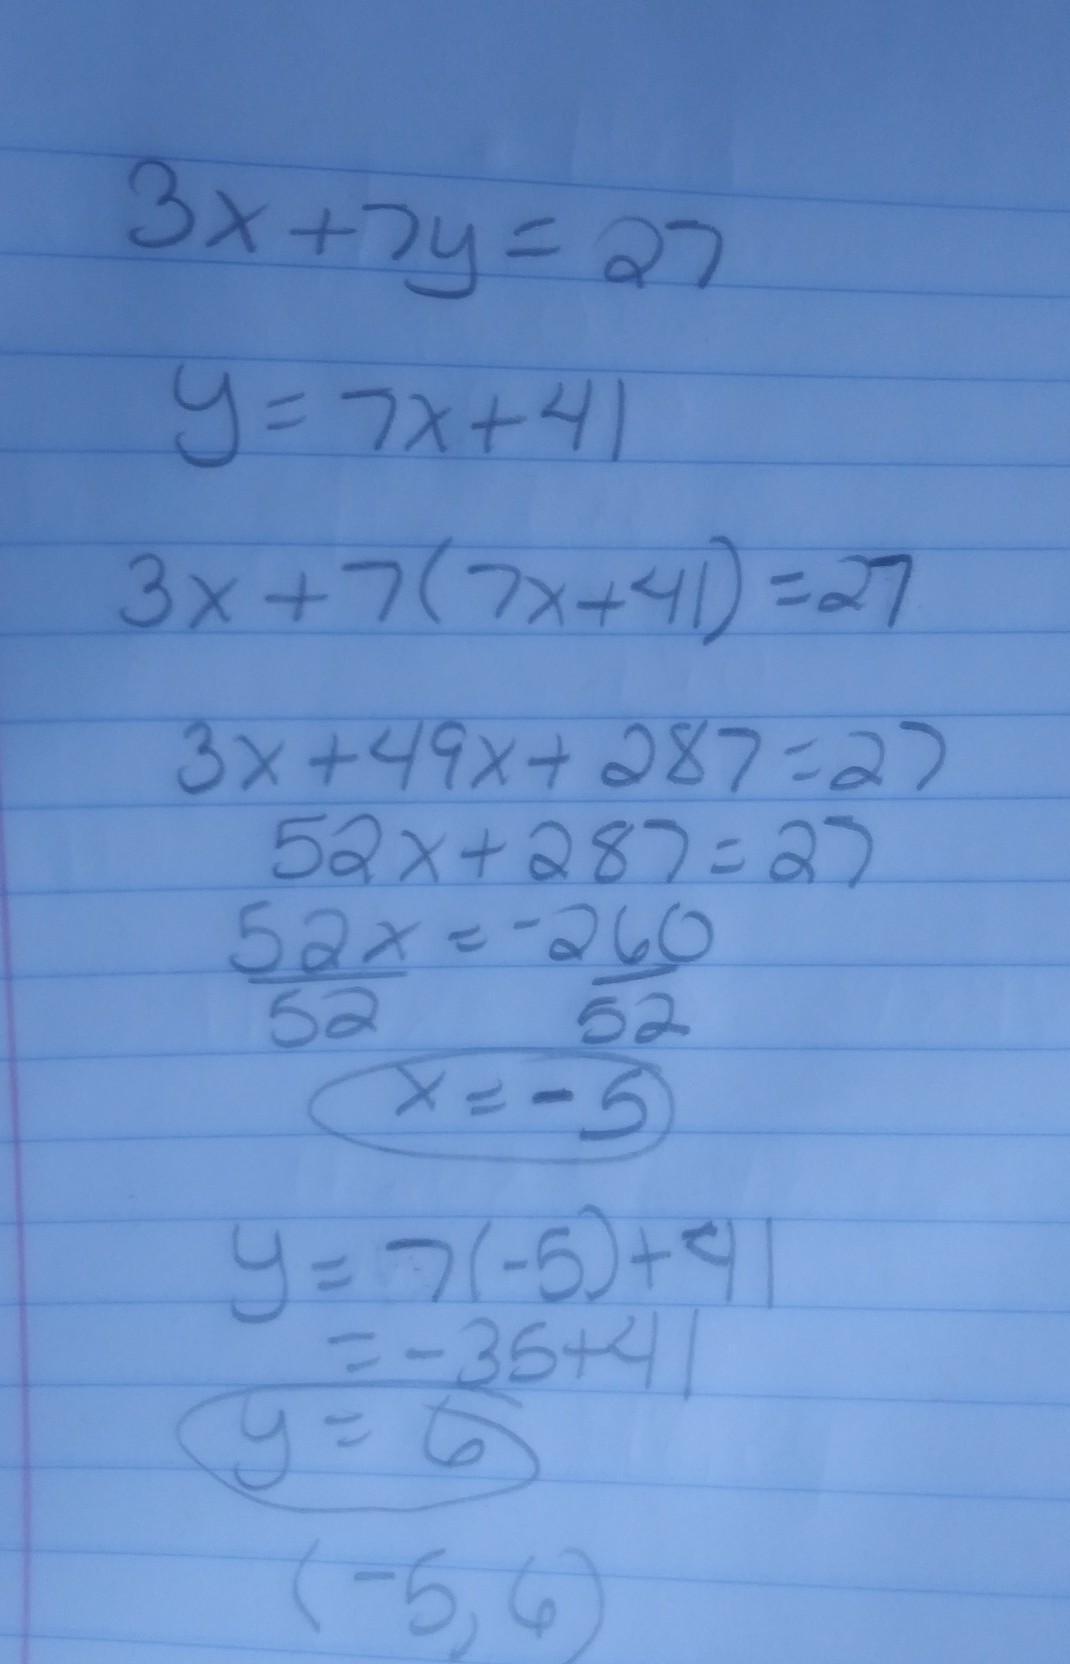 3x+7y=27
y=7x+41
3x+7(7x+41)=27
3x+49x+287=27
52x+287=27
52x=-260
52 52
x=-5
y=7(-5)+41
=-35+41
y=6
(-5,6)